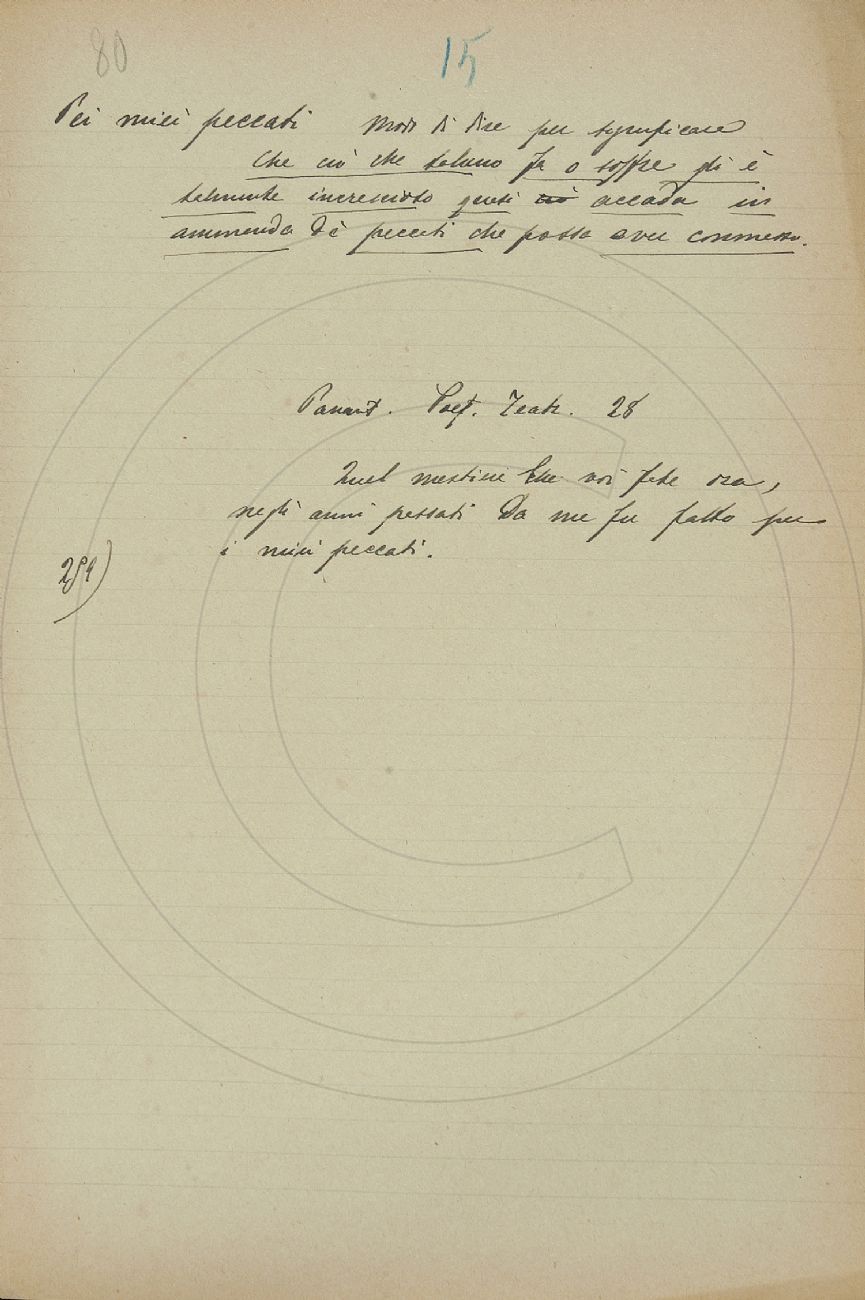 80
15
Pei miei peccati Modo di dire per significare
che ciò che taluno fa o soffre gli è
talmente increscioso quasi ciò accada in
ammenda de' peccati che possa aver commesso.
Panant. Poet. Teatr. 28
Quel mestier che voi fate ora,
negli anni passati Da me fu fatto per
i miei peccati.